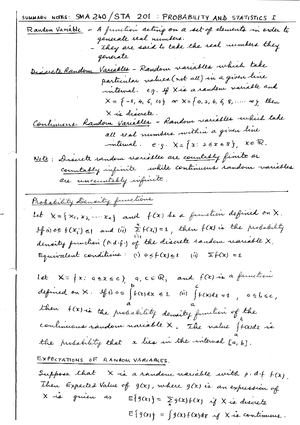 SUMMARY NOTES: SMA 240/STA 201: PROBABILITY AND STATISTICS I
Random Variable - A function acting on a set of elements in order to
generate real numbers.
- They are said to take the real numbers they
generate
Discrete Random Variables - Random variables which take
particular values (not all) in a given line
interval. e.g. If X is a random variable and
X is discrete.
Continuous Random Variables - Random variables which take
all real numbers within a given line
interval. e.g. X = {x: 2≤x≤8}, x∈R.
Note: Discrete random variables are countably finite or
countably infinite while continuous random variables
are uncountably infinite.
Probability Density functions
Let X = {x₁, x₂, ... xₙ} and f(x) be a function defined on X.
If (i) 0≤f(xᵢ)≤1 and (ii) Σf(xᵢ)=1, then f(x) is the probability
density function (p.d.f.) of the discrete random variable X.
Equivalent conditions: (i) 0≤f(x)≤1 (ii) Σf(x)=1
Let X = {x: a≤x≤c}, a,c∈R, and f(x) is a function
defined on X. If
then f(x) is the probability density function of the
continuous random variable X. The value ∫f(x)dx is
the probability that x lies in the interval [a, b].
EXPECTATIONS OF RANDOM VARIABLES.
Suppose that X is a random variable with p.d.f f(x).
Then Expected Value of g(x), where g(x) is an expression of
X is given as E{g(x)} = Σg(x)f(x) if X is discrete
E{g(x)} = ∫g(x)f(x)dx if X is continuous.